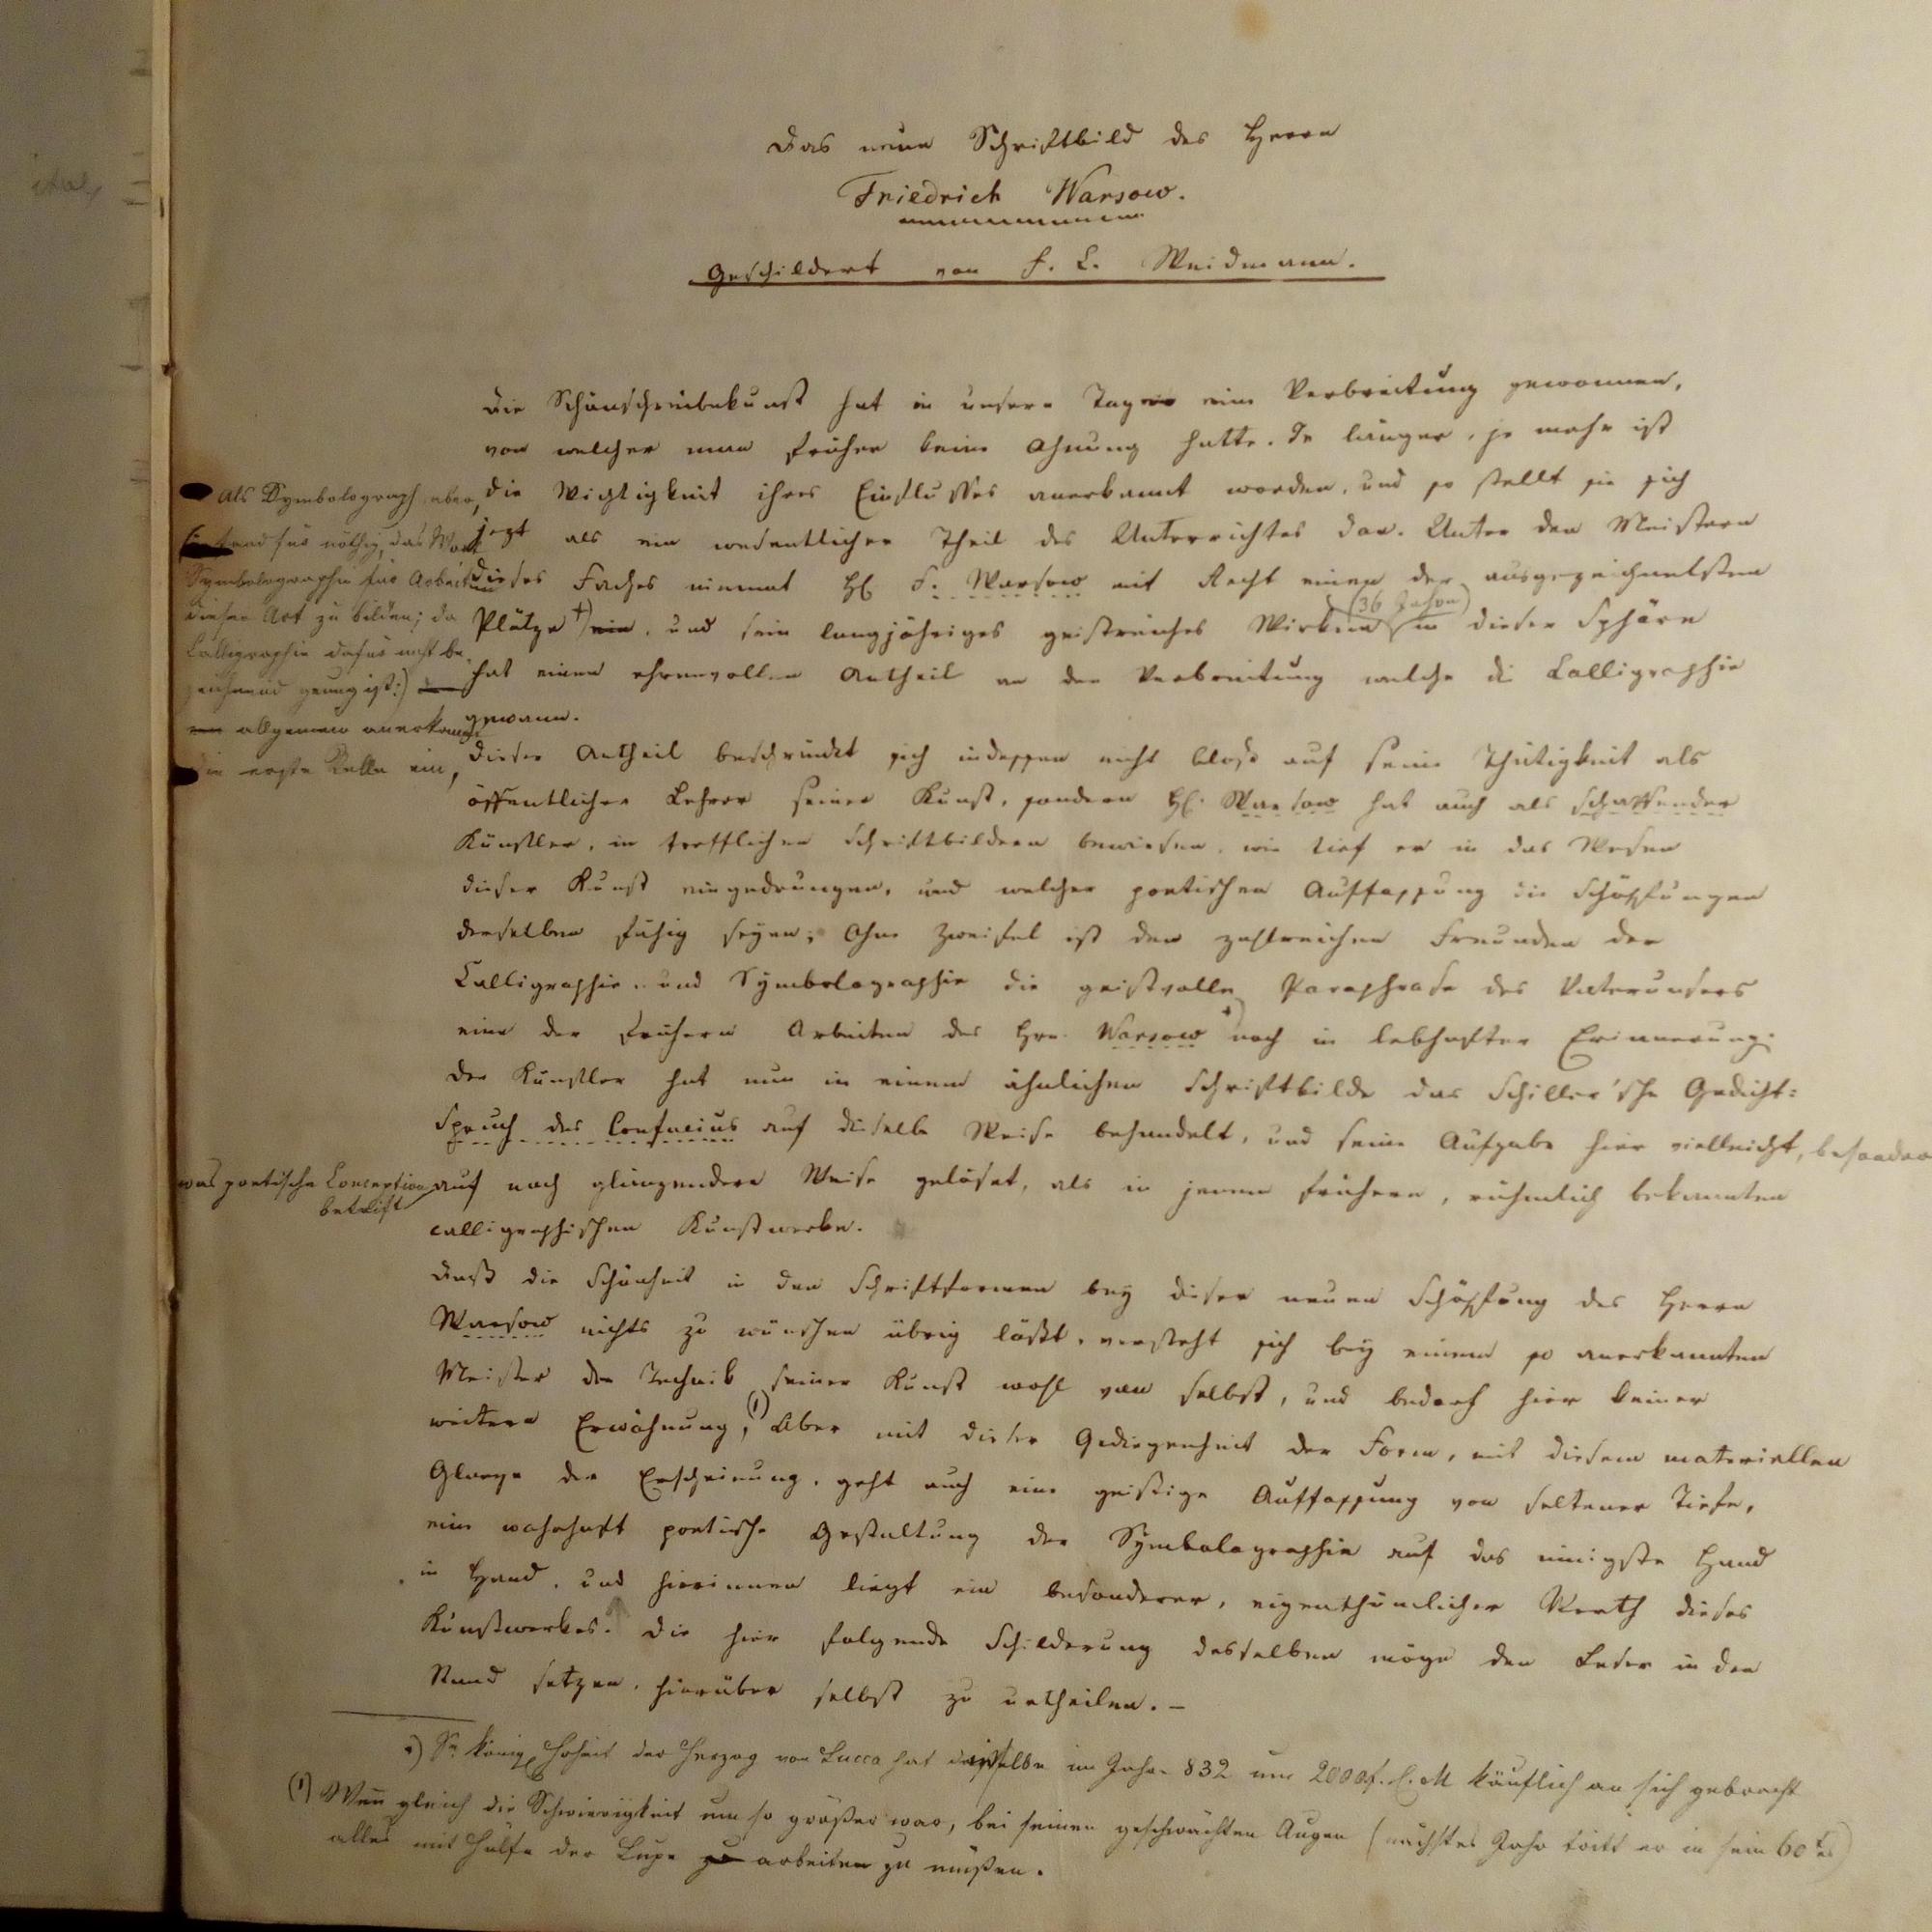 Das neue Schriftbild des Herrn
Friedrich Warsow.
Geschildert von F. C. Weidmann.
Die Schönschreibekunst hat in unsern Tagen eine Verbreitung gewonnen,
von welcher man früher keine Ahnung hatte. Je länger, je mehr ist
die Wichtigkeit ihres Einflusses anerkannt worden, und so stellt sie sich
jezt als ein wesentlicher Theil des Unterrichtes dar. Unter den Meistern
dieses Faches nimmt H. F. Warsow mit Recht einen der ausgezeichnetsten
Plätze +) ein, und sein langjähriges geistreiches Wirken (36 Jahre) in dieser Sphäre
hat einen ehrenvollen Antheil an der Verbreitung welche die Calligraphie
gewann.
Als Symbolograph aber,
fand für nöthig, das Wort
Symbolographie für Arbeiten
dieser Art zu bilden; da
Calligraphie dafür nicht be-
zeichnend genug ist:)
allgemein anerkannt
die erste Stelle ein,
Dieser Antheil beschränkt sich indessen nicht blos auf seine Thätigkeit als
öffentlicher Lehrer seiner Kunst, sondern H. Warsow hat auch als schaffender
Künstler, in trefflichen Schriftbildern bewiesen, wie tief er in das Wesen
dieser Kunst eingedrungen, und welcher poetischen Auffassung die Schöpfungen
derselben fähig seyen; Ohne Zweifel ist den zahlreichen Freunden der
Calligraphie und Symbolographie die geistvolle Paraphrase des Vaterunsers
eine der frühern Arbeiten des Hrn. Warsow *) noch in lebhafter Erinnerung.
Der Künstler hat nun in einem ähnlichen Schriftbilde das Schiller'sche Gedicht:
Spruch des Confucius auf dieselbe Weise behandelt, und seine Aufgabe hier vielleicht, besonders
was poetische Conception
betrift
auf noch glänzendere Weise gelöset, als in jenem frühern, rühmlich bekannten
calligraphischen Kunstwerke.
Daß die Schönheit in den Schriftformen bey dieser neuen Schöpfung des Herrn
Warsow nichts zu wünschen übrig läßt, versteht sich bey einem so anerkannten
Meister der Technik seiner Kunst wohl von selbst, und bedarf hier keiner
weitern Erwähnung, (1) Aber mit dieser Gediegenheit der Form, mit diesem materiellen
Glanze der Erscheinung, geht auch eine geistige Auffassung von seltener Tiefe,
eine wahrhaft poetische Gestaltung der Symbolographie auf das innigste Hand
in Hand, und hierinnen liegt ein besonderer, eigenthümlicher Werth dieses
Kunstwerkes. Die hier folgende Schilderung desselben möge den Leser in den
Stand setzen, hierüber selbst zu urtheilen. –
*) Se königl Hoheit der Herzog von Lucca hat dasselbe im Jahre 832 um 2000 f. C. M käuflich an sich gebracht
(1) Wenn gleich die Schwierigkeit um so größer war, bei seinen geschwächten Augen (nächstes Jahr tritt er in sein 60tes)
alles mit Hülfe der Lupe zu arbeiten zu müßen.